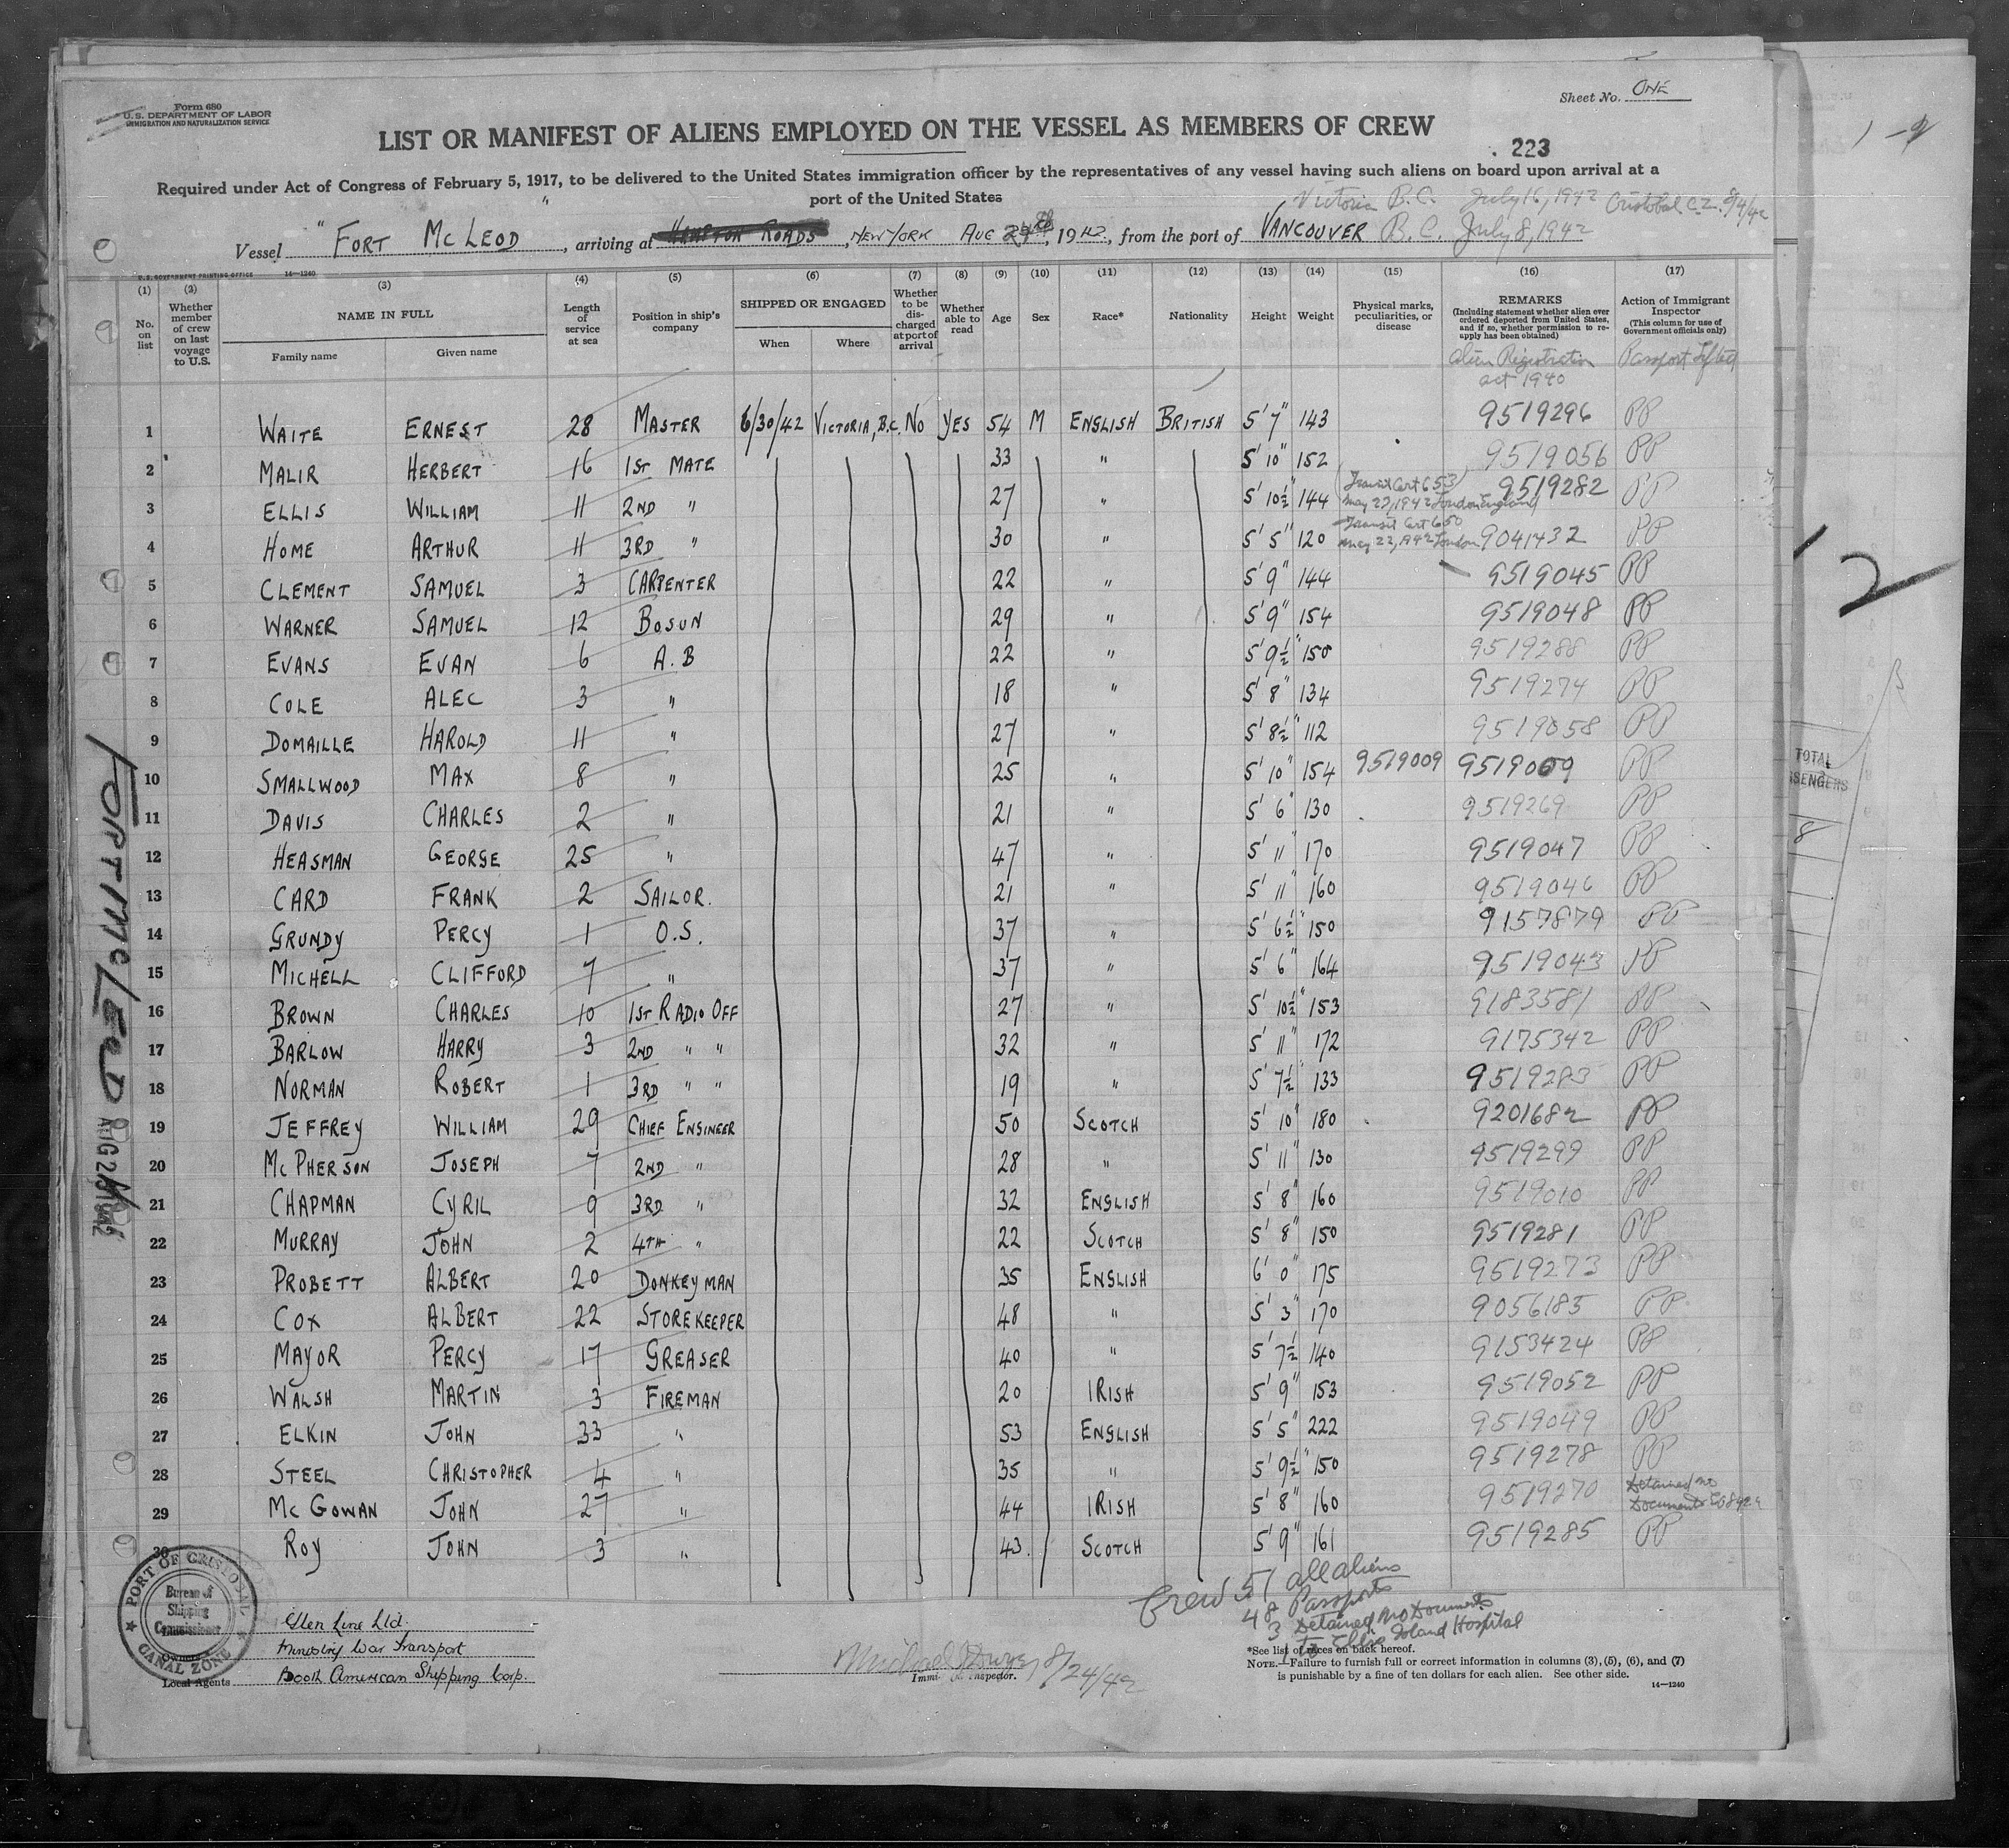 Form 680
U.S. DEPARTMENT OF LABOR
IMMIGRATION AND NATURALIZATION SERVICE
Sheet No. ONE
1-2
LIST OR MANIFEST OF ALIENS EMPLOYED ON THE VESSEL AS MEMBERS OF CREW
223
Required under Act of Congress of February 5, 1917, to be delivered to the United States immigration officer by the representatives of any vessel having such aliens on board upon arrival at a
port of the United States
Victoria B.C. July 16, 1942 Cristobal C.Z. 8/4/42
Vessel "FORT McLEOD", arriving at HAMPTON ROADS, NEW YORK AUG 24th, 1942, from the port of VANCOUVER B.C. July 8, 1942
U.S. GOVERNMENT PRINTING OFFICE 14—1240
(1) (2) (3) (4) (5) (6) (7) (8) (9) (10) (11) (12) (13) (14) (15) (16) (17)
No. on list
Whether member of crew on last voyage to U.S.
NAME IN FULL
Family name Given name
Length of service at sea
Position in ship's company
SHIPPED OR ENGAGED
When Where
Whether to be discharged at port of arrival
Whether able to read
Age
Sex
Race*
Nationality
Height
Weight
Physical marks, peculiarities, or disease
REMARKS
(Including statement whether alien ever ordered deported from United States, and if so, whether permission to re-apply has been obtained)
Alien Registration
act 1940
Action of Immigrant Inspector
(This column for use of Government officials only)
Passport Lifted
1 WAITE ERNEST 28 MASTER 6/30/42 VICTORIA, B.C. NO YES 54 M ENGLISH BRITISH 5' 7" 143 9519296 PP
2 MALIR HERBERT 16 1ST MATE 33 " 5' 10" 152 9519056 PP
3 ELLIS WILLIAM 11 2ND " 27 " 5' 10½" 144 (Transit Cert 653) May 23, 1942 London England 9519282 PP
4 HOME ARTHUR 11 3RD " 30 " 5' 5" 120 Transit Cert 650 May 22, 1942 London 9041432 PP
5 CLEMENT SAMUEL 3 CARPENTER 22 " 5' 9" 144 9519045 PP
6 WARNER SAMUEL 12 BOSUN 29 " 5' 9" 154 9519048 PP
7 EVANS EVAN 6 A.B 22 " 5' 9½" 150 9519288 PP
8 COLE ALEC 3 " 18 " 5' 8" 134 9519274 PP
9 DOMAILLE HAROLD 11 " 27 " 5' 8½" 112 9519058 PP
10 SMALLWOOD MAX 8 " 25 " 5' 10" 154 9519009 9519009 PP
11 DAVIS CHARLES 2 " 21 " 5' 6" 130 9519269 PP
12 HEASMAN GEORGE 25 " 47 " 5' 11 170 9519047 PP
13 CARD FRANK 2 SAILOR. 21 " 5' 11" 160 9519046 PP
14 GRUNDY PERCY 1 O.S. 37 " 5' 6½" 150 9157879 PP
15 MICHELL CLIFFORD 7 " 37 " 5' 6" 164 9519043 PP
16 BROWN CHARLES 10 1ST RADIO OFF 27 " 5' 10½" 153 9183581 PP
17 BARLOW HARRY 3 2ND " " 32 " 5' 11" 172 9175342 PP
18 NORMAN ROBERT 1 3RD " " 19 " 5' 7½" 133 9519283 PP
19 JEFFREY WILLIAM 29 CHIEF ENGINEER 50 SCOTCH 5' 10" 180 9201682 PP
20 McPHERSON JOSEPH 7 2ND " 28 " 5' 11" 130 9519299 PP
21 CHAPMAN CYRIL 9 3RD " 32 ENGLISH 5' 8" 160 9519010 PP
22 MURRAY JOHN 2 4TH " 22 SCOTCH 5' 8" 150 9519281 PP
23 PROBETT ALBERT 20 DONKEYMAN 35 ENGLISH 6' 0" 175 9519273 PP
24 COX ALBERT 22 STOREKEEPER 48 " 5' 3" 170 9056185 PP
25 MAYOR PERCY 17 GREASER 40 " 5' 7½" 140 9153424 PP
26 WALSH MARTIN 3 FIREMAN 20 IRISH 5' 9" 153 9519052 PP
27 ELKIN JOHN 33 " 53 ENGLISH 5' 5" 222 9519049 PP
28 STEEL CHRISTOPHER 4 " 35 " 5' 9½" 150 9519278 PP
29 McGOWAN JOHN 27 " 44 IRISH 5' 8" 160 9519270 Detained no Documents
30 ROY JOHN 3 " 43. SCOTCH 5' 9" 161 9519285 PP
FORT McLEOD
2
TOTAL
8
PORT OF CRISTOBAL
Bureau of Shipping Commissioner
CANAL ZONE
Glen Line Ltd.
Ministry War Transport
Owners
Booth American Shipping Corp.
Local Agents
Crew 51 all aliens
48 Passports
3 Detained no Documents
1 to Ellis Island Hospital
Michael Dwyer 8/24/42
Immigrant Inspector.
*See list of races on back hereof.
NOTE.—Failure to furnish full or correct information in columns (3), (5), (6), and (7)
is punishable by a fine of ten dollars for each alien. See other side.
14—1240